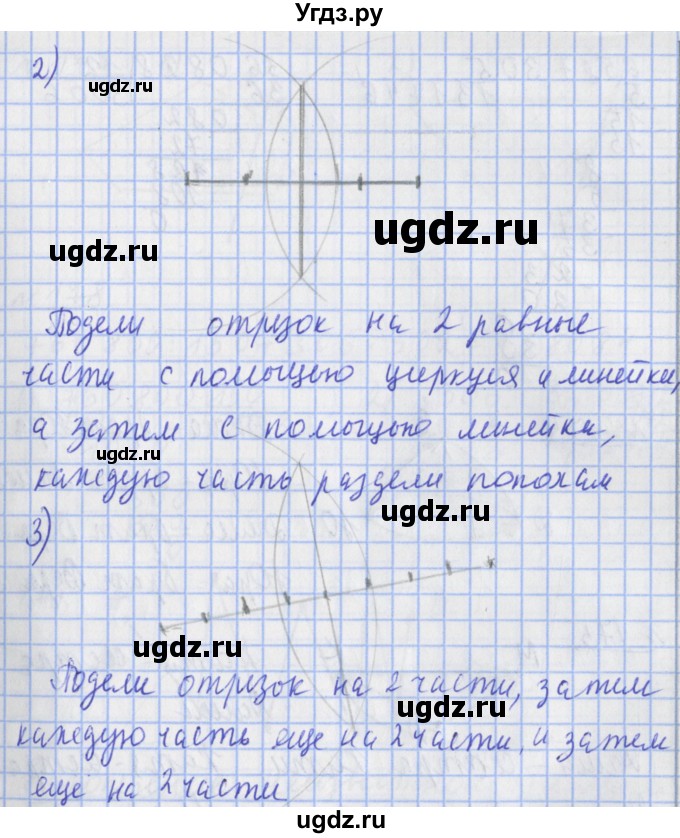 Угдз.ру
2)
ugdz.ru
ugdz.ru
ugdz.ru
Подели отрезок на 2 равные
части с помощью циркуля и линейки,
а затем с помощью линейки,
каждую часть раздели пополам
ugdz.ru
3)
ugdz.ru
Подели отрезок на 2 части, затем
ugdz.ru
каждую часть еще на 2 части, и затем
еще на 2 части
ugdz.ru